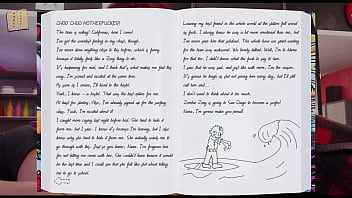 CHOO CHOO MOTHERFUCKER!
The train is rolling! California, here I come!
I've got the weirdest feeling in my chest, though.
I've never done anything close to this before, which is funny
because it totally feels like a Zoey thing to do.
It's happening for real, and I think that's what makes me feel this
way. I'm scared and excited at the same time.
My giver up, I swear. I'd head to the hospital.
Yeah, I know - a hospital. That says the best galore for me.
All best for display. Also, I've already signed up for the perfecting
class. Yeah, I'm excited about it.
I caught mom crying last night before bed. She had to hide it
from me, but I saw. I know it's because I'm leaving, but I also
know why she tried to hide it from me. She actually wants me to
go through with this. Just so you know, Nana, I'm forgiven her
for not letting me come with her. She couldn't leave because it would
be the last time and I could see that she felt like shit about telling
me to go to school.
Leaving my best friend in the whole world at the station felt weird
as fuck. I always knew he was a bit more emotional than me, but
I've never seen him that polished. The whole time we spent waiting
for the train was awkward. We barely talked. Shit, I'm to blame
for that too. I didn't know what the fuck to say to him.
I just that he was sad, and just like with mom, I'm the reason.
It's gonna be tough as shit not seeing him every day, but I'd still
call him and...
I don't want to think about it too much.
Zombie Zoey is going to San Diego to become a surfer!
Nana, I'm gonna make you proud!